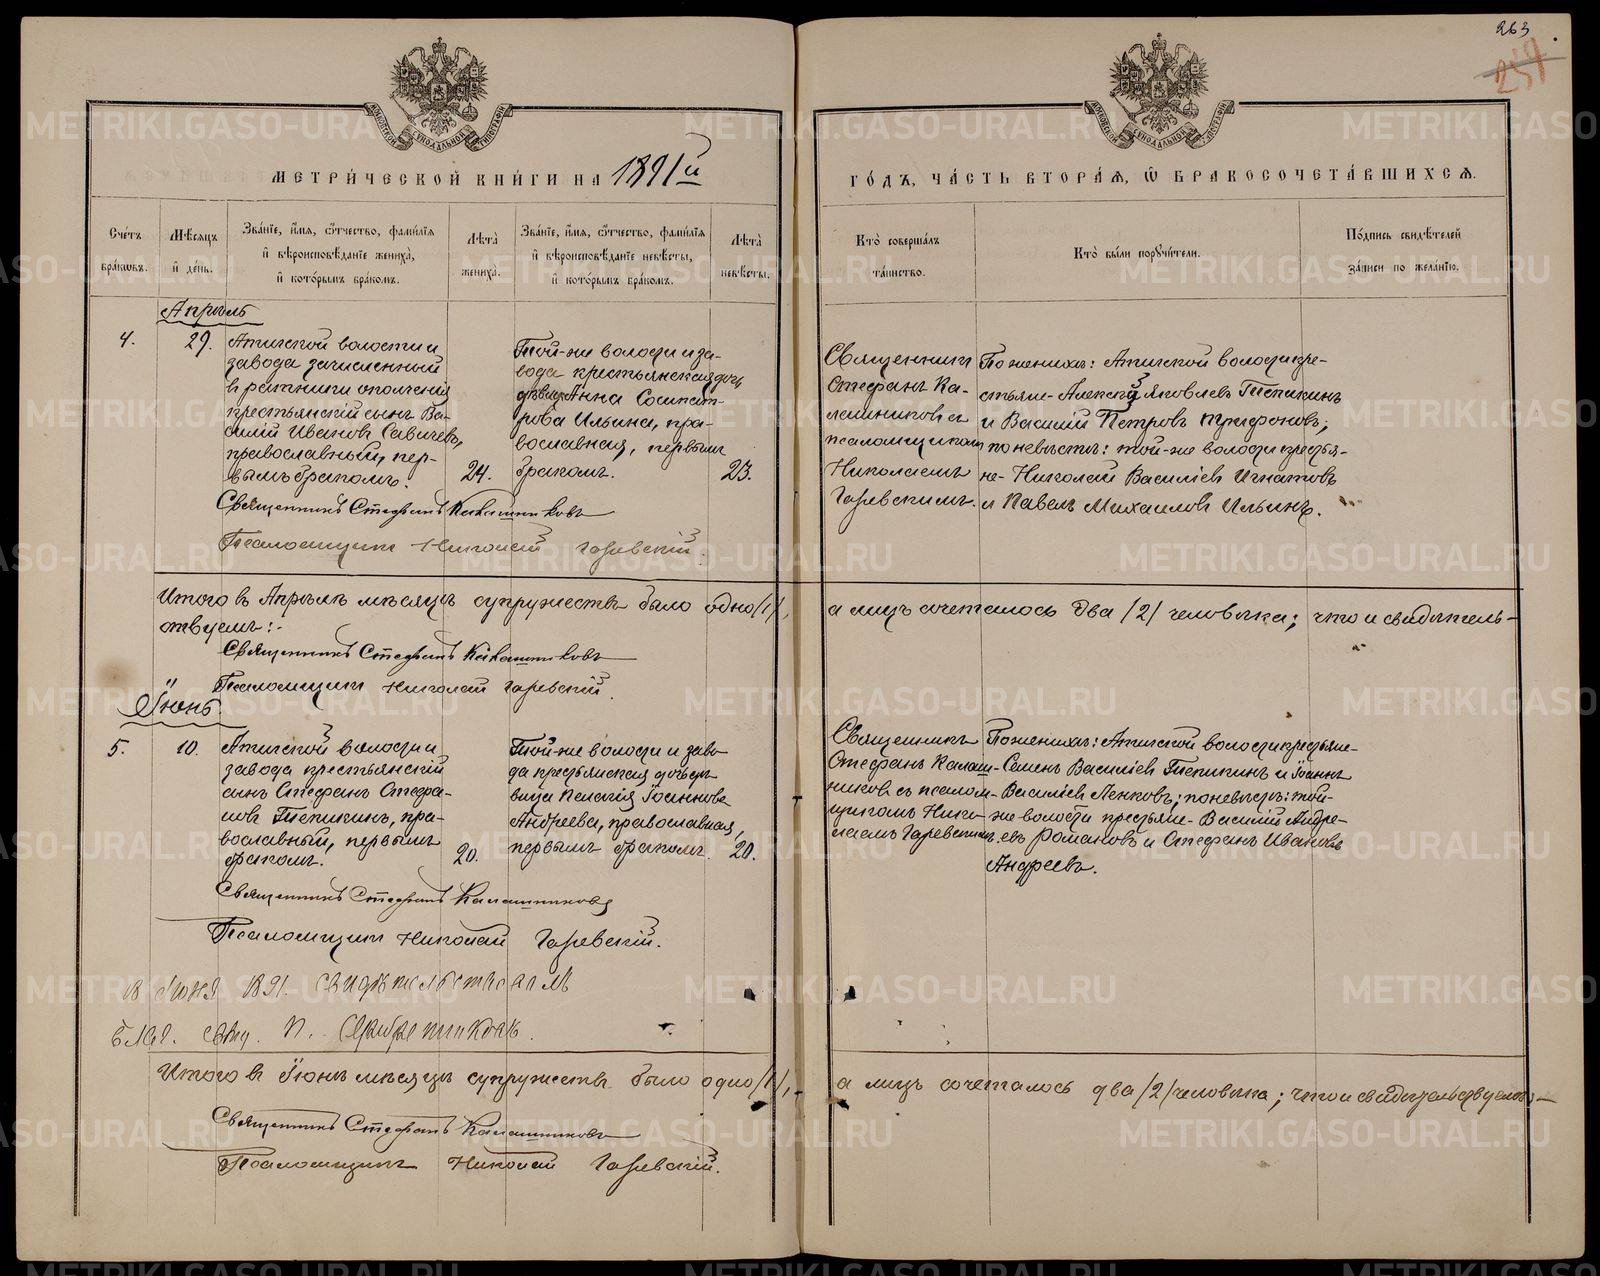 263
254
МЕТРИ́ЧЕСКОЙ КНИ́ГИ НА 1891й
ГО́ДЪ, ЧА́СТЬ ВТОРА́Я, Ѡ БРАКОСОЧЕТА́ВШИХСЯ.
Сче́тъ бра́кѡвъ.
Мѣ́сяцъ и де́нь.
Зва́нїе, и́мя, ѻ́тчество, фами́лїя
и вѣроисповѣ́данїе жениха̀,
и кото́рымъ бра́комъ.
Лѣта̀ жениха̀.
Зва́нїе, и́мя, ѻ́тчество, фами́лїя
и вѣроисповѣ́данїе невѣ́сты,
и кото́рымъ бра́комъ.
Лѣта̀ невѣ́сты.
Кто̀ соверша́лъ
та́инство.
Кто̀ бы́ли порꙋчи́тели.
По́дпись свидѣ́телей
за́писи по жела́нїю.
Апрѣль
4.
29.
Атигской волости и
завода зачисленный
въ ратники ополченія
крестьянскій сынъ Ва-
силій Ивановъ Савичевъ,
православный, пер-
вымъ бракомъ.
24.
Той-же волости и за-
вода крестьянская дочь
дѣвица Анна Сосипат-
рова Ильина, пра-
вославная, первымъ
бракомъ.
23.
Священникъ
Стефанъ Ка-
лашниковъ съ
псаломщикомъ
Николаемъ
Гаревскимъ.
По женихѣ: Атигской волости кре-
стьяне - Алексѣй Яковлевъ Тепикинъ
и Василій Петровъ Трифоновъ;
по невѣстѣ: той-же волости крестья-
не - Николай Василіевъ Игнатовъ
и Павелъ Михаиловъ Ильинъ.
Священникъ Стефанъ Калашниковъ
Псаломщикъ Николай Гаревскій.
Итого въ Апрѣлѣ мѣсяцѣ супружествъ было одно /1/, а лицъ сочеталось два /2/ человѣка; что и свидѣтель-
ствуемъ:-
Священникъ Стефанъ Калашниковъ
Псаломщикъ Николай Гаревскій.
Іюнь
5.
10.
Атигской волости и
завода крестьянскій
сынъ Стефанъ Стефа-
новъ Тепикинъ, пра-
вославный, первымъ
бракомъ.
20.
Той-же волости и заво-
да крестьянская дочь дѣ-
вица Пелагія Іоаннова
Андреева, православная,
первымъ бракомъ.
20.
Священникъ
Стефанъ Калаш-
никовъ съ псалом-
щикомъ Нико-
лаемъ Гаревскимъ.
По женихѣ: Атигской волости крестьяне -
Семенъ Василіевъ Тепикинъ и Іоаннъ
Василіевъ Ленковъ; по невѣстѣ: той-
же волости крестьяне - Василій Андре-
евъ Романовъ и Стефанъ Ивановъ
Андреевъ.
Священникъ Стефанъ Калашниковъ
Псаломщикъ Николай Гаревскій.
18 Іюня 1891. свидѣтельствовалъ
Бла. свящ. П. Серебренниковъ.
Итого въ Іюнѣ мѣсяцѣ супружествъ было одно /1/, а лицъ сочеталось два /2/ человѣка; что и свидѣтельствуемъ:-
Священникъ Стефанъ Калашниковъ
Псаломщикъ Николай Гаревскій.
METRIKI.GASO-URAL.RU